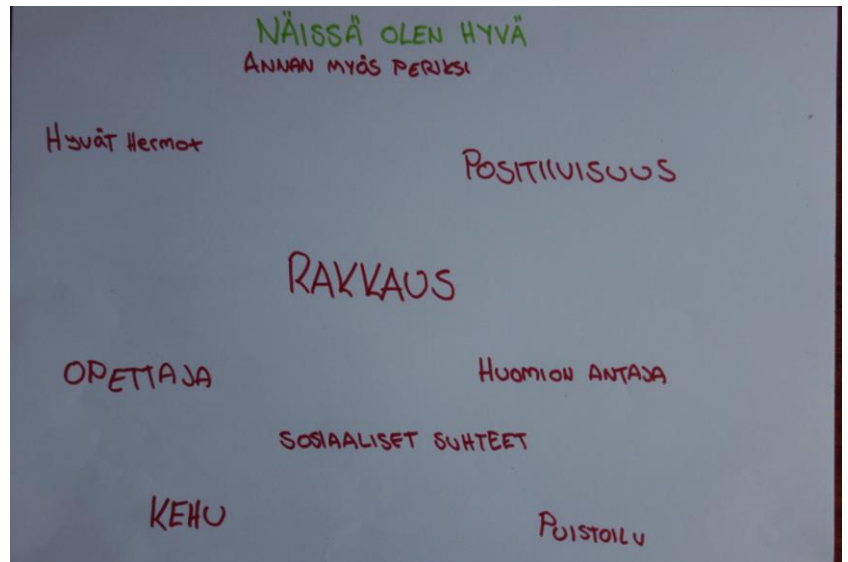 NÄISSÄ OLEN HYVÄ
ANNAN MYÖS PERIKSI
Hyvät Hermot
POSITIIVISUUS
RAKKAUS
OPETTAJA
HUOMION ANTAJA
SOSIAALISET SUHTEET
KEHU
PUISTOILU